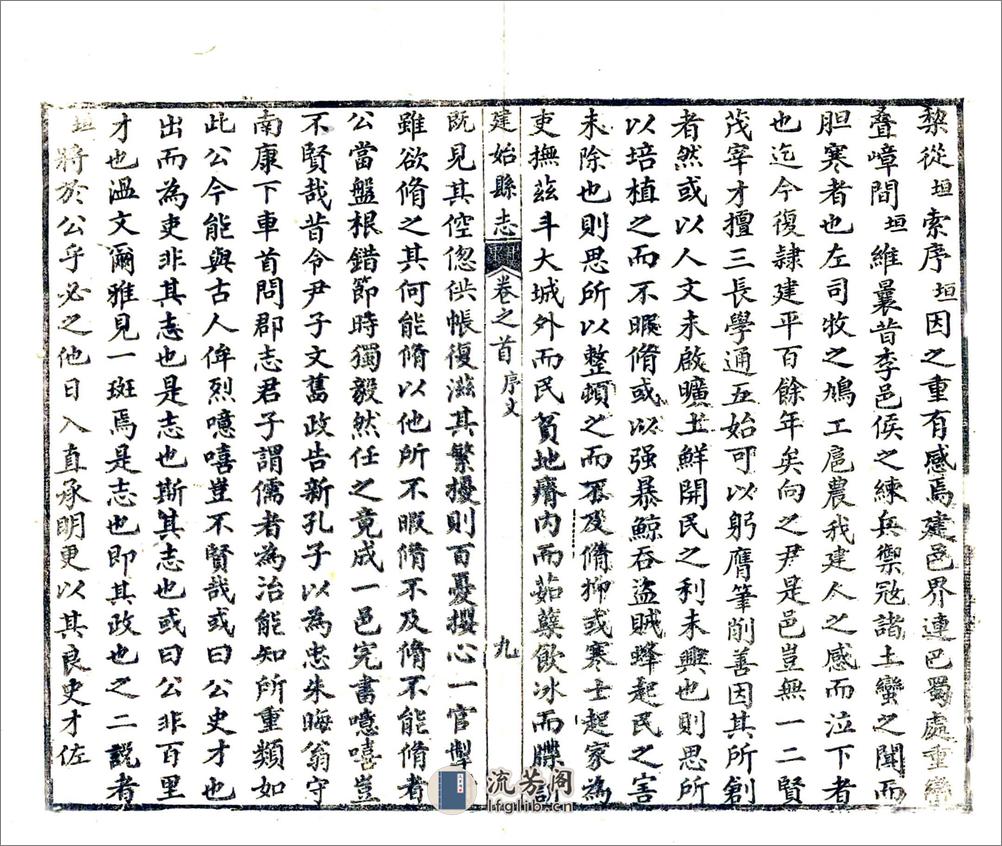 梨從垣索序垣因之重有感焉建邑界連巴蜀處重巒
疊嶂間垣維曩昔李邑侯之練兵禦寇諸土蠻之聞而
胆寒者也左司牧之鳩工扈農我建人之感而泣下者
也迄今復隷建平百餘年矣向之尹是邑豈無一二賢
茂宰才擅三長學通五始可以躬膺筆削善因其所創
者然或以人文未啟曠土鮮開民之利未興也則思所
以培植之而不暇脩或以强暴鯨吞盜賊蜂起民之害
未除也則思所以整頓之而不及脩抑或寒士起家為
吏撫兹斗大城外而民貧地瘠内而茹蘗飲冰而牒訴
建始縣志
卷之首
序文
九
既見其倥偬供帳復滋其繁擾則百憂攖心一官掣
雖欲脩之其何能脩以他所不暇脩不及脩不能脩者
公當盤根錯節時獨毅然任之竟成一邑完書噫嘻豈
不賢哉昔令尹子文舊政告新孔子以為忠朱晦翁守
南康下車首問郡志君子謂儒者為治能知所重類如
此公今能與古人侔烈噫嘻豈不賢哉或曰公史才也
出而為吏非其志也是志也斯其志也或曰公非百里
才也溫文爾雅見一斑焉是志也即其政也之二説者
垣將於公乎必之他日入直承明更以其良史才佐
流芳阁
lfglib.cn